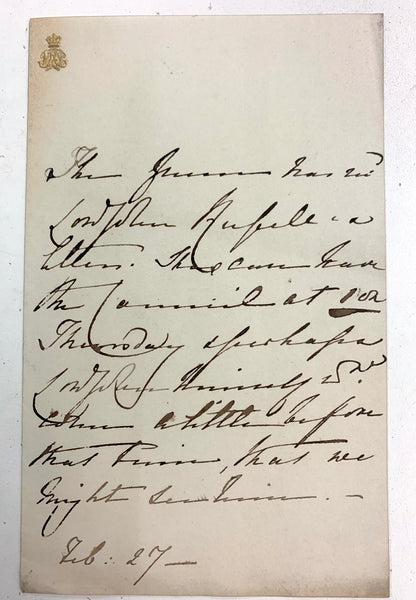 The Queen has recd
Lord John Russell's
letter. She can have
the Council at 1 on
Thursday & perhaps
Lord John himself wd.
come a little before
that time, that we
might see him. —
Feb: 27 —